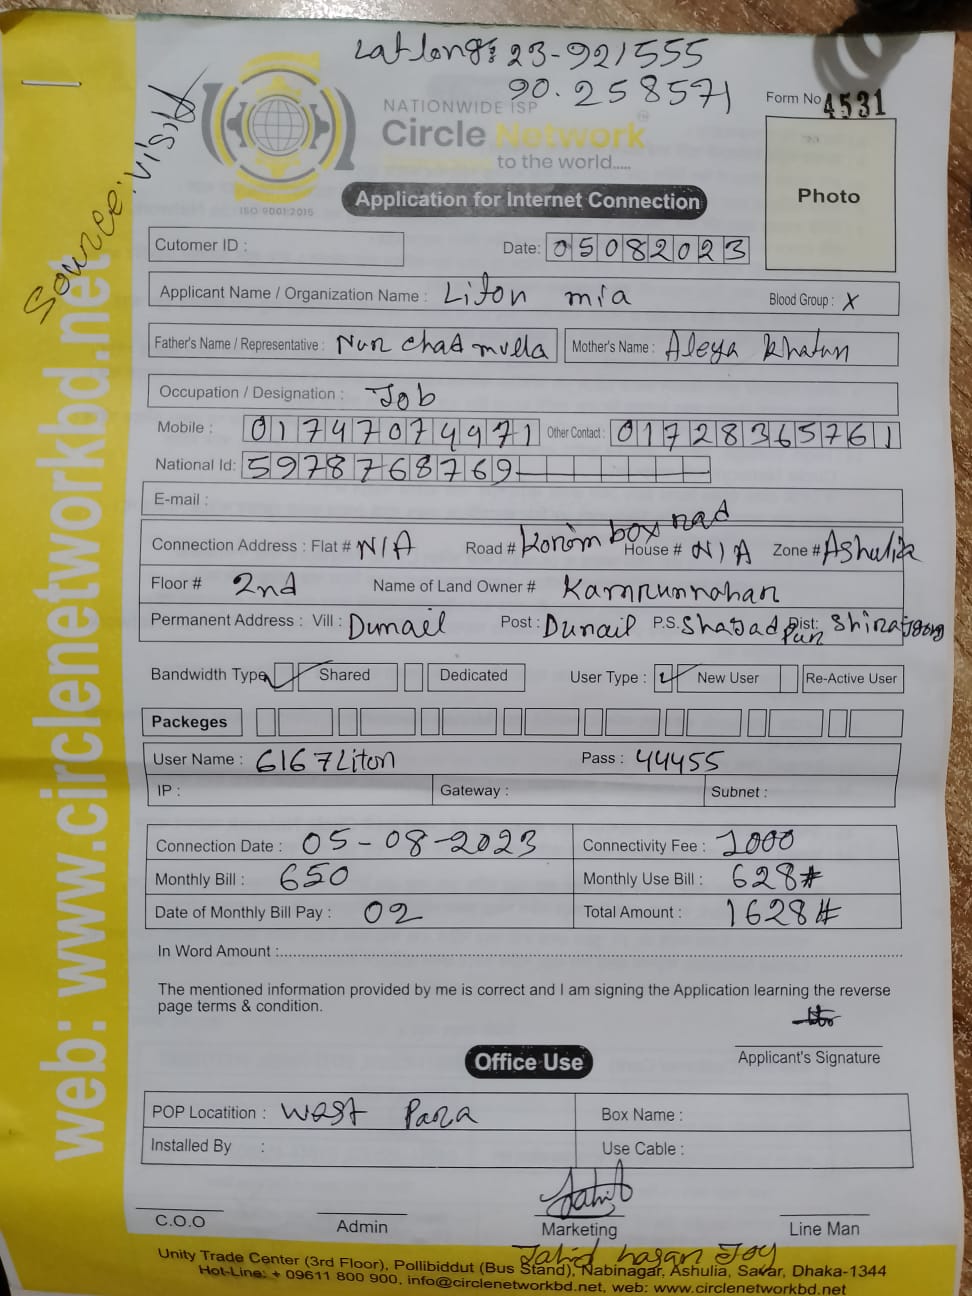 Latlong: 23-921555
90.258571
Source: Visit
NATIONWIDE ISP
Circle Network
to the world.....
ISO 9001:2015
Form No 4531
Photo
Application for Internet Connection
Cutomer ID :
Date: 05082023
Applicant Name / Organization Name : Liton mia
Blood Group : X
Father's Name / Representative : Nur chad mulla
Mother's Name : Aleya Khatun
Occupation / Designation : Job
Mobile : 01747074971 Other Contact : 01728365761
National Id: 5978768769
E-mail :
Connection Address : Flat # N/A Road # Korim box rad House # N/A Zone # Ashulia
Floor # 2nd Name of Land Owner # Kamrunnahar
Permanent Address : Vill : Dunail Post : Dunail P.S. Shajadpur Dist: Shirajgong
Bandwidth Type Shared Dedicated User Type : New User Re-Active User
Packeges
User Name : 6167Liton Pass : 44455
IP : Gateway : Subnet :
Connection Date : 05-08-2023 Connectivity Fee : 1000
Monthly Bill : 650 Monthly Use Bill : 628#
Date of Monthly Bill Pay : 02 Total Amount : 1628#
In Word Amount :
The mentioned information provided by me is correct and I am signing the Application learning the reverse
page terms & condition.
Applicant's Signature
Office Use
POP Locatition : West Para Box Name :
Installed By : Use Cable :
C.O.O Admin Marketing Line Man
Jahid hasan Joy
Unity Trade Center (3rd Floor), Pollibiddut (Bus Stand), Nabinagar, Ashulia, Savar, Dhaka-1344
Hot-Line: + 09611 800 900, info@circlenetworkbd.net, web: www.circlenetworkbd.net
web: www.circlenetworkbd.net